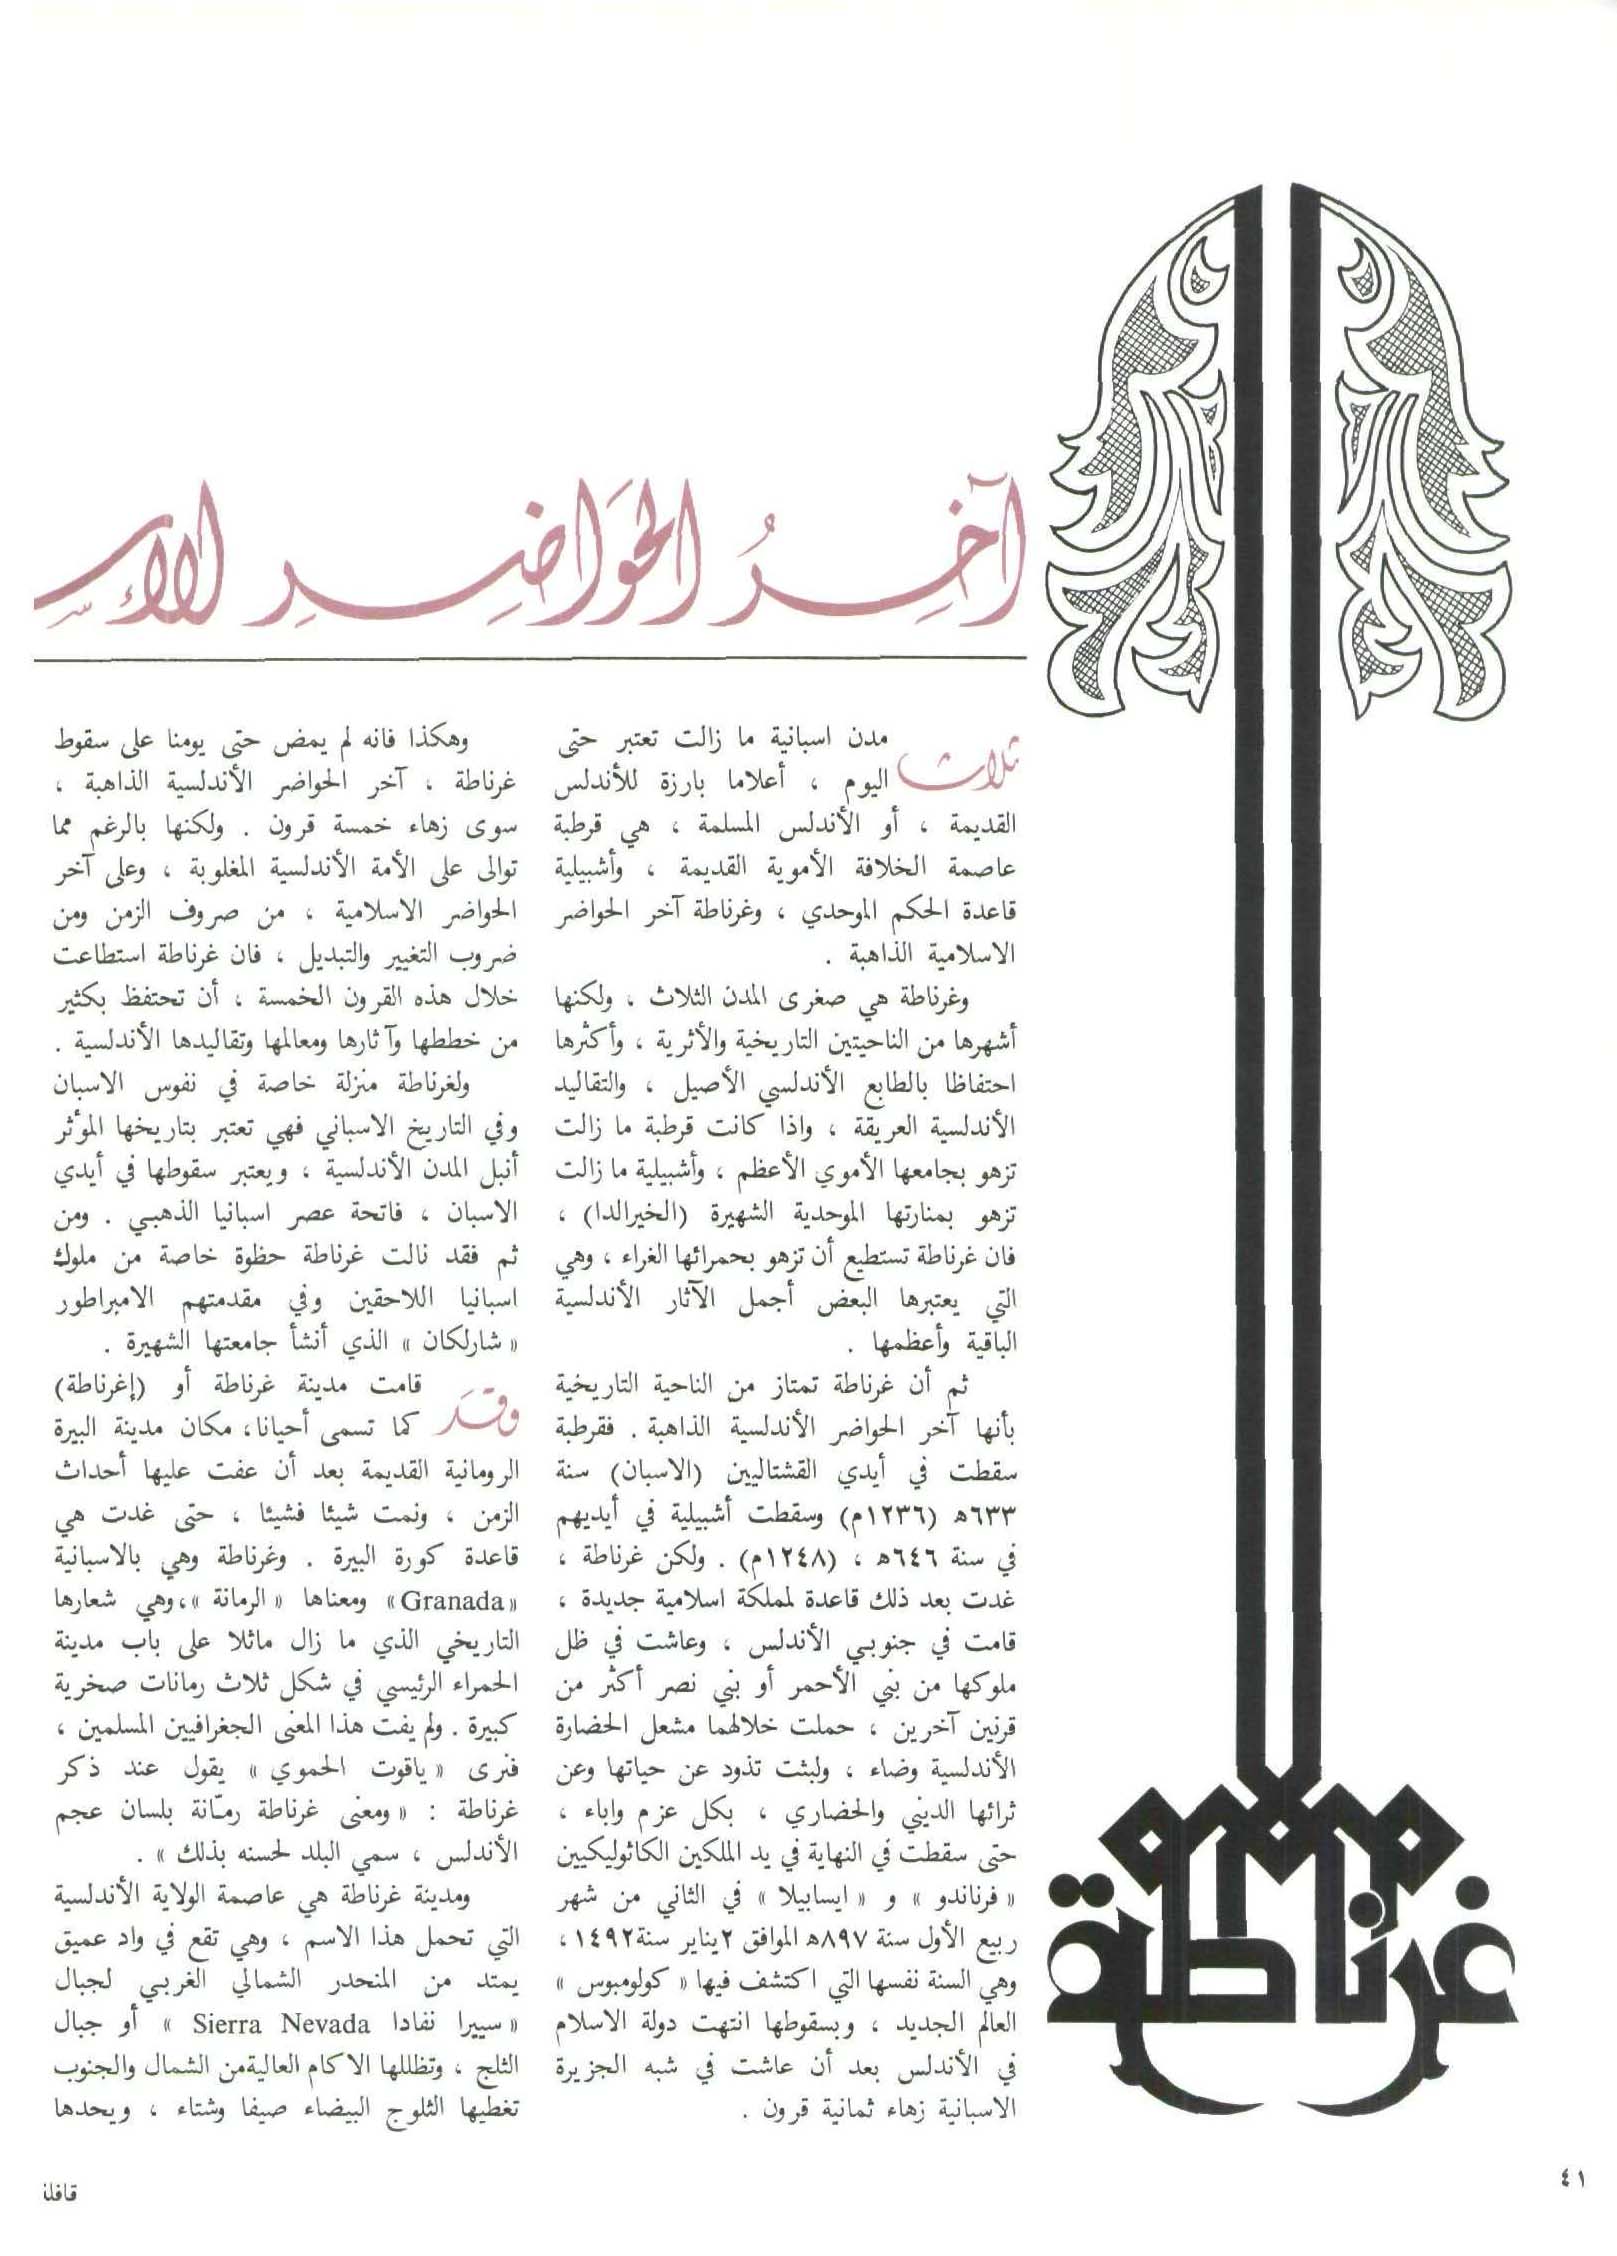 غرناطة
آخِرُ الحَوَاضِرِ الإس
ثلاث مدن اسبانية ما زالت تعتبر حتى
اليوم ، أعلاما بارزة للأندلس
القديمة ، أو الأندلس المسلمة ، هي قرطبة
عاصمة الخلافة الأموية القديمة ، وأشبيلية
قاعدة الحكم الموحدي ، وغرناطة آخر الحواضر
الاسلامية الذاهبة .
وغرناطة هي صغرى المدن الثلاث ، ولكنها
أشهرها من الناحيتين التاريخية والأثرية ، وأكثرها
احتفاظا بالطابع الأندلسي الأصيل ، والتقاليد
الأندلسية العريقة ، واذا كانت قرطبة ما زالت
تزهو بجامعها الأموي الأعظم ، وأشبيلية ما زالت
تزهو بمنارتها الموحدية الشهيرة (الخيرالدا) ،
فان غرناطة تستطيع أن تزهو بحمرائها الغراء ، وهي
التي يعتبرها البعض أجمل الآثار الأندلسية
الباقية وأعظمها .
ثم أن غرناطة تمتاز من الناحية التاريخية
بأنها آخر الحواضر الأندلسية الذاهبة . فقرطبة
سقطت في أيدي القشتاليين (الاسبان) سنة
٦٣٣هـ (١٢٣٦م) وسقطت أشبيلية في أيديهم
في سنة ٦٤٦هـ ، (١٢٤٨م) . ولكن غرناطة ،
غدت بعد ذلك قاعدة لمملكة اسلامية جديدة ،
قامت في جنوبي الأندلس ، وعاشت في ظل
ملوكها من بني الأحمر أو بني نصر أكثر من
قرنين آخرين ، حملت خلالهما مشعل الحضارة
الأندلسية وضاء ، ولبثت تذود عن حياتها وعن
ثرائها الديني والحضاري ، بكل عزم واباء ،
حتى سقطت في النهاية في يد الملكين الكاثوليكيين
« فرناندو » و « ايسابيلا » في الثاني من شهر
ربيع الأول سنة ٨٩٧هـ الموافق ٢يناير سنة١٤٩٢ ،
وهي السنة نفسها التي اكتشف فيها « كولومبوس »
العالم الجديد ، وبسقوطها انتهت دولة الاسلام
في الأندلس بعد أن عاشت في شبه الجزيرة
الاسبانية زهاء ثمانية قرون .
وهكذا فانه لم يمض حتى يومنا على سقوط
غرناطة ، آخر الحواضر الأندلسية الذاهبة ،
سوى زهاء خمسة قرون . ولكنها بالرغم مما
توالى على الأمة الأندلسية المغلوبة ، وعلى آخر
الحواضر الاسلامية ، من صروف الزمن ومن
ضروب التغيير والتبديل ، فان غرناطة استطاعت
خلال هذه القرون الخمسة ، أن تحتفظ بكثير
من خططها وآثارها ومعالمها وتقاليدها الأندلسية .
ولغرناطة منزلة خاصة في نفوس الاسبان
وفي التاريخ الاسباني فهي تعتبر بتاريخها المؤثر
أنبل المدن الأندلسية ، ويعتبر سقوطها في أيدي
الاسبان ، فاتحة عصر اسبانيا الذهبي . ومن
ثم فقد نالت غرناطة حظوة خاصة من ملوك
اسبانيا اللاحقين وفي مقدمتهم الامبراطور
« شارلكان » الذي أنشأ جامعتها الشهيرة .
وقَد قامت مدينة غرناطة أو (إغرناطة)
كما تسمى أحيانا، مكان مدينة البيرة
الرومانية القديمة بعد أن عفت عليها أحداث
الزمن ، ونمت شيئا فشيئا ، حتى غدت هي
قاعدة كورة البيرة . وغرناطة وهي بالاسبانية
«Granada» ومعناها « الرمانة »،وهي شعارها
التاريخي الذي ما زال ماثلا على باب مدينة
الحمراء الرئيسي في شكل ثلاث رمانات صخرية
كبيرة . ولم يفت هذا المعنى الجغرافيين المسلمين ،
فنرى « ياقوت الحموي » يقول عند ذكر
غرناطة : « ومعنى غرناطة رمّانة بلسان عجم
الأندلس ، سمي البلد لحسنه بذلك » .
ومدينة غرناطة هي عاصمة الولاية الأندلسية
التي تحمل هذا الاسم ، وهي تقع في واد عميق
يمتد من المنحدر الشمالي الغربي لجبال
« سييرا نفادا Sierra Nevada » أو جبال
الثلج ، وتظللها الاكام العاليةمن الشمال والجنوب
تغطيها الثلوج البيضاء صيفا وشتاء ، ويحدها
٤١
قافلة